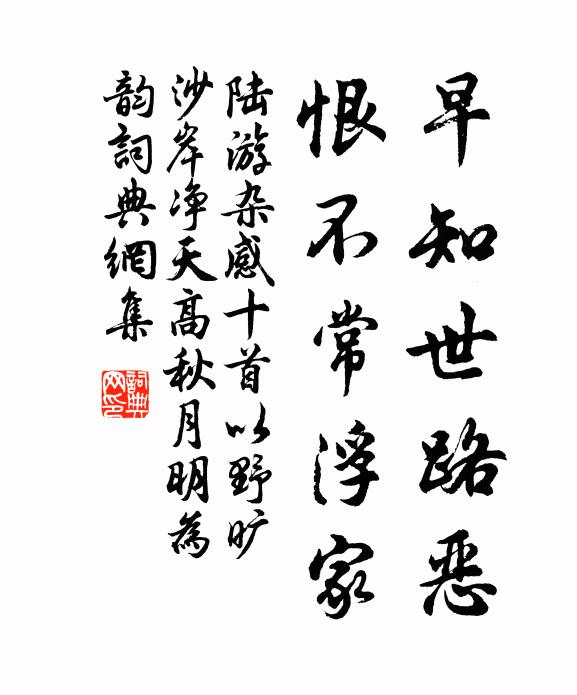 早知世路恶
恨不常浮家
陆游杂感十首以野旷
沙岸净天高秋月明為
韵詞典網集
詞典
网印